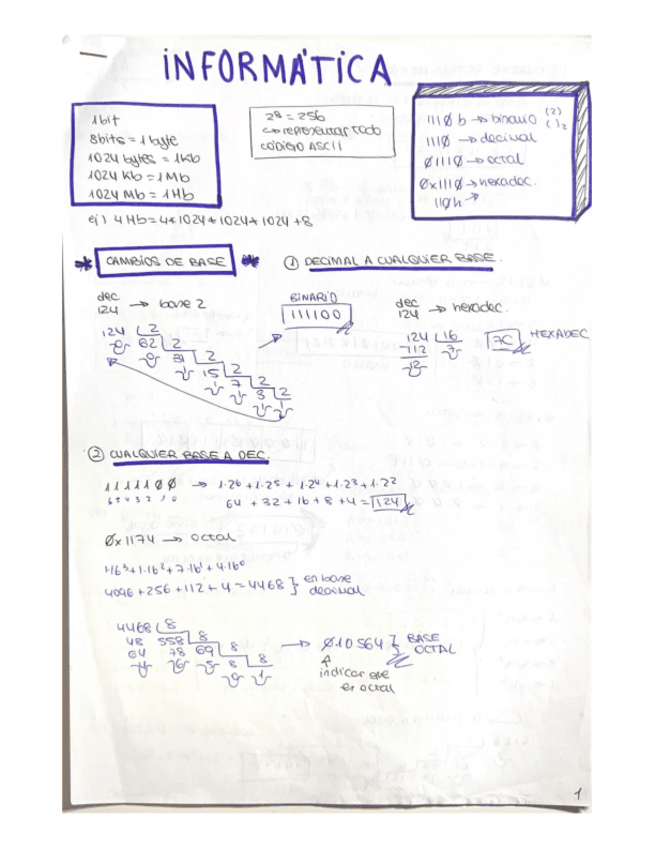 INFORMÁTICA
1bit
8bits = 1 byte
1024 bytes = 1Kb
1024 Kb = 1Mb
1024 Mb = 1Hb
2⁸ = 256
↳ representar todo
CÓDIGO ASCII
111∅ b → binario (2) ( )₂
111∅ → decimal
∅111∅ → octal
∅x111∅ → hexadec.
11∅h →
ej) 4 Hb = 4*1024*1024*1024*8
* CAMBIOS DE BASE *
① DECIMAL A CUALQUIER BASE.
dec
124 → base 2
BINARIO
111100
dec
124 → hexadec.
124 2
0 62 2
0 31 2
1 15 2
1 7 2
1 3 2
1 1
124 16
-112 7
12
7C HEXADEC
② CUALQUIER BASE A DEC.
11111∅∅ → 1·2⁶+1·2⁵+1·2⁴+1·2³+1·2²
6 5 4 3 2 1 0
64 + 32 + 16 + 8 + 4 = 124
∅x1174 → octal
1·16³+1·16²+7·16¹+4·16⁰
4096 + 256 + 112 + 4 = 4468 } en base decimal
4468 8
48 558 8
64 78 69 8
4 6 5 8 8
0 1
→ ∅10564 } BASE OCTAL
indicar que
es octal
1